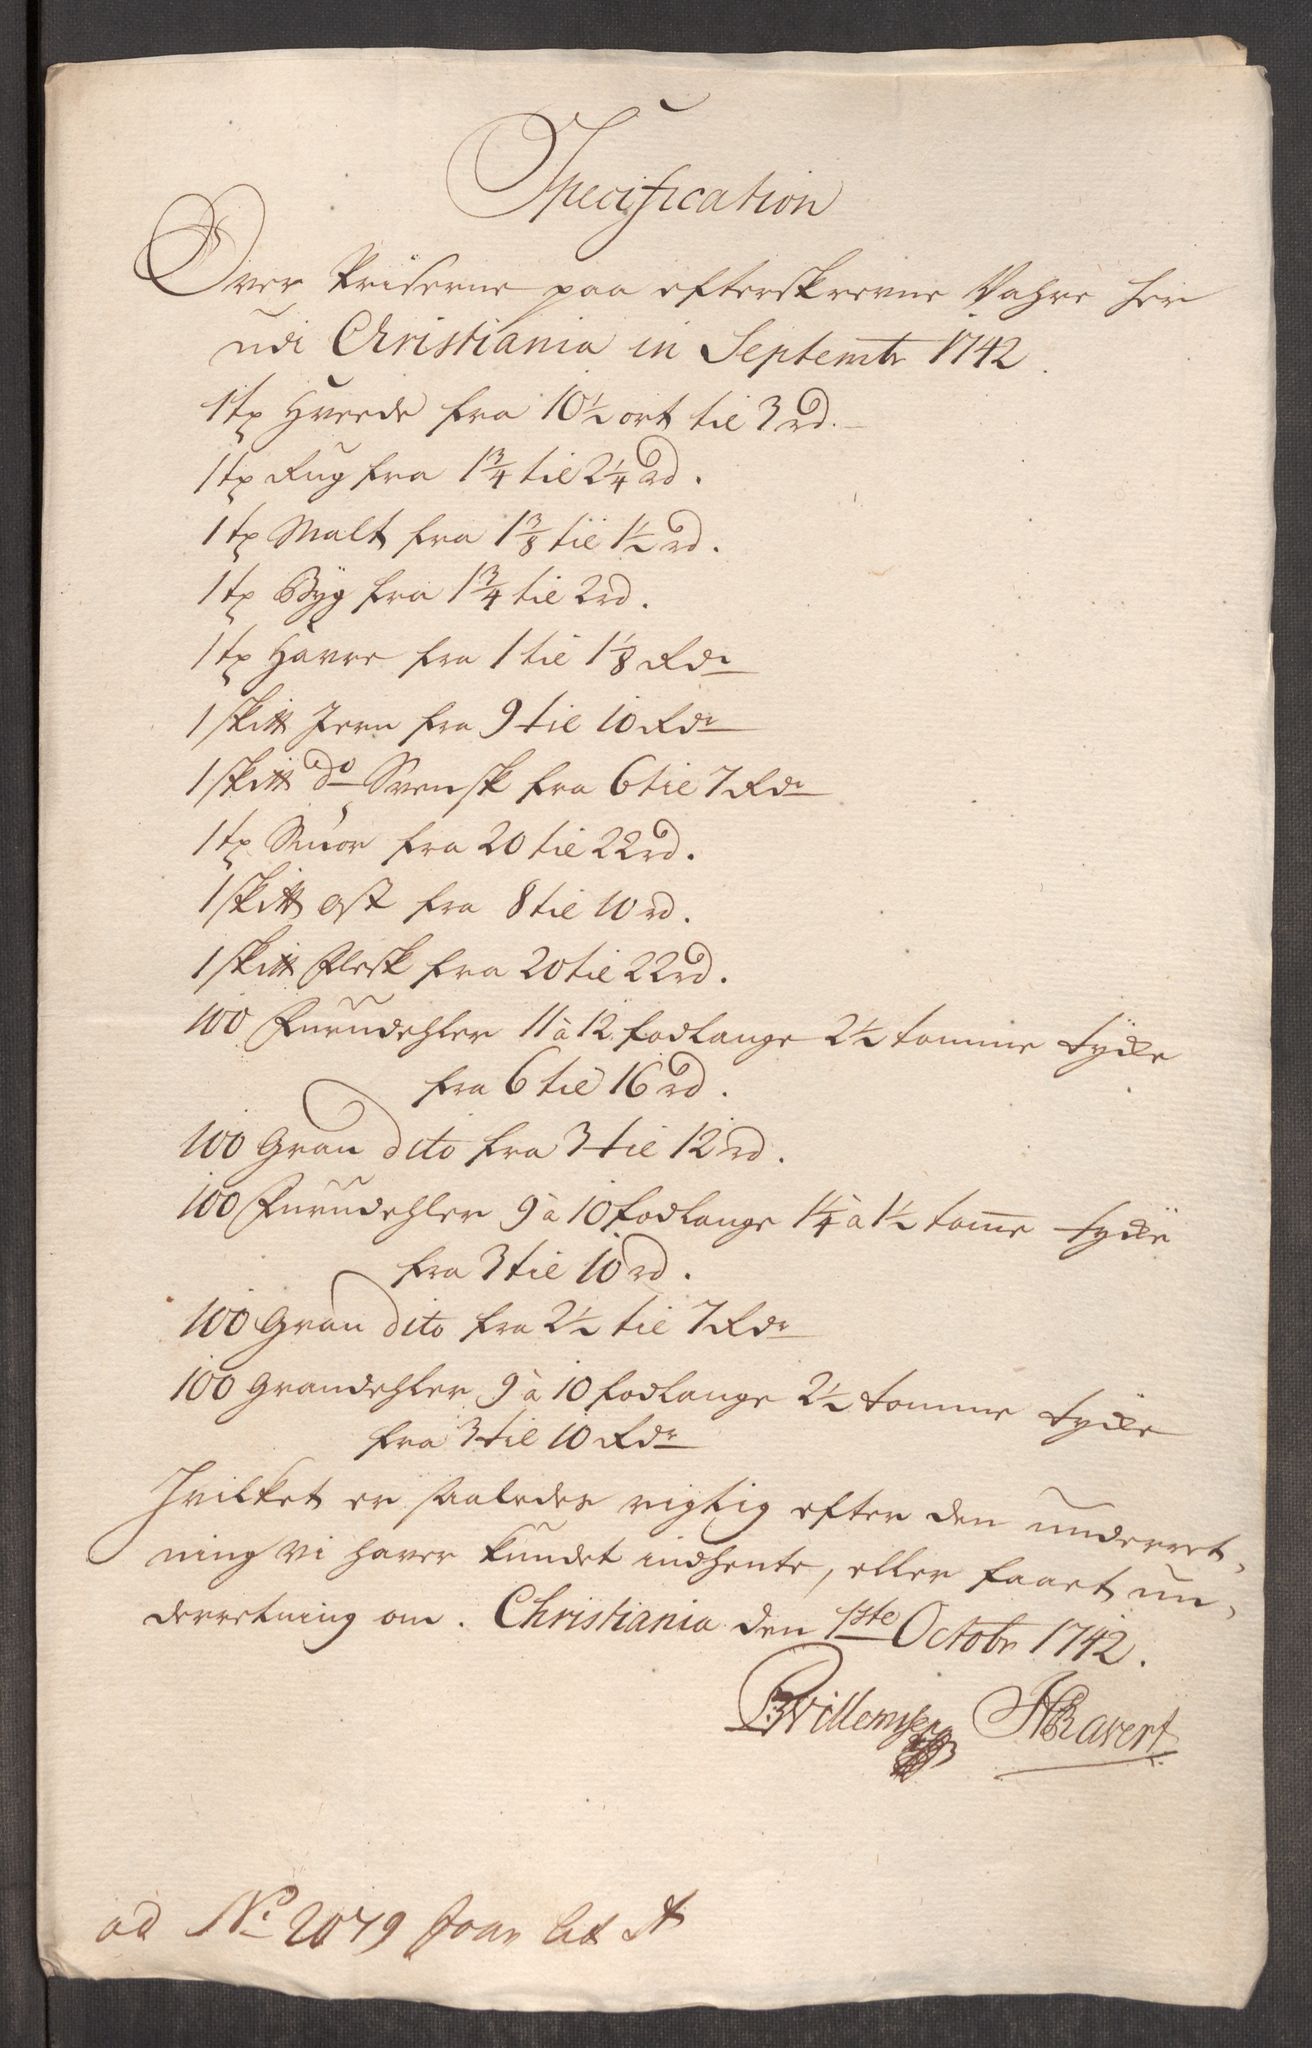 Specification
Over Priserne paa efterskrevne Vahre her
udi Christiania in Septembr 1742.
1 tø Hveede fra 10½ ort til 3 rd.
1 tø Rug fra 1¾ til 2¼ rd.
1 tø Malt fra 1⅜ til 1½ rd.
1 tø Byg fra 1¾ til 2 rd.
1 tø Havre fra 1 til 1⅛ Rdr
1 skitt Jern fra 9 til 10 Rdr
1 skitt do Svensk fra 6 til 7 Rdr
1 tø Smør fra 20 til 22 rd.
1 skitt ost fra 8 til 10 rd.
1 skitt Flesk fra 20 til 22 rd.
100 Furudehler 11 à 12 fodlange 2½ tomme tycke
fra 6 til 16 rd.
100 Gran dito fra 3 til 12 rd.
100 Furudehler 9 à 10 fodlange 1¼ à 1½ tome tycke
fra 3 til 10 rd.
100 Gran dito fra 2½ til 7 Rdr
100 Grandehler 9 à 10 fodlange 2½ tomme tycke
fra 3 til 10 Rdr
Hvilket er saaledes rigtig efter den underret-
ning vi haver kundet indhente, eller faaet un-
derretning om. Christiania den 1ste Octobr 1742.
BWillemsen HRavert
ad No 2079 Jour Lit A